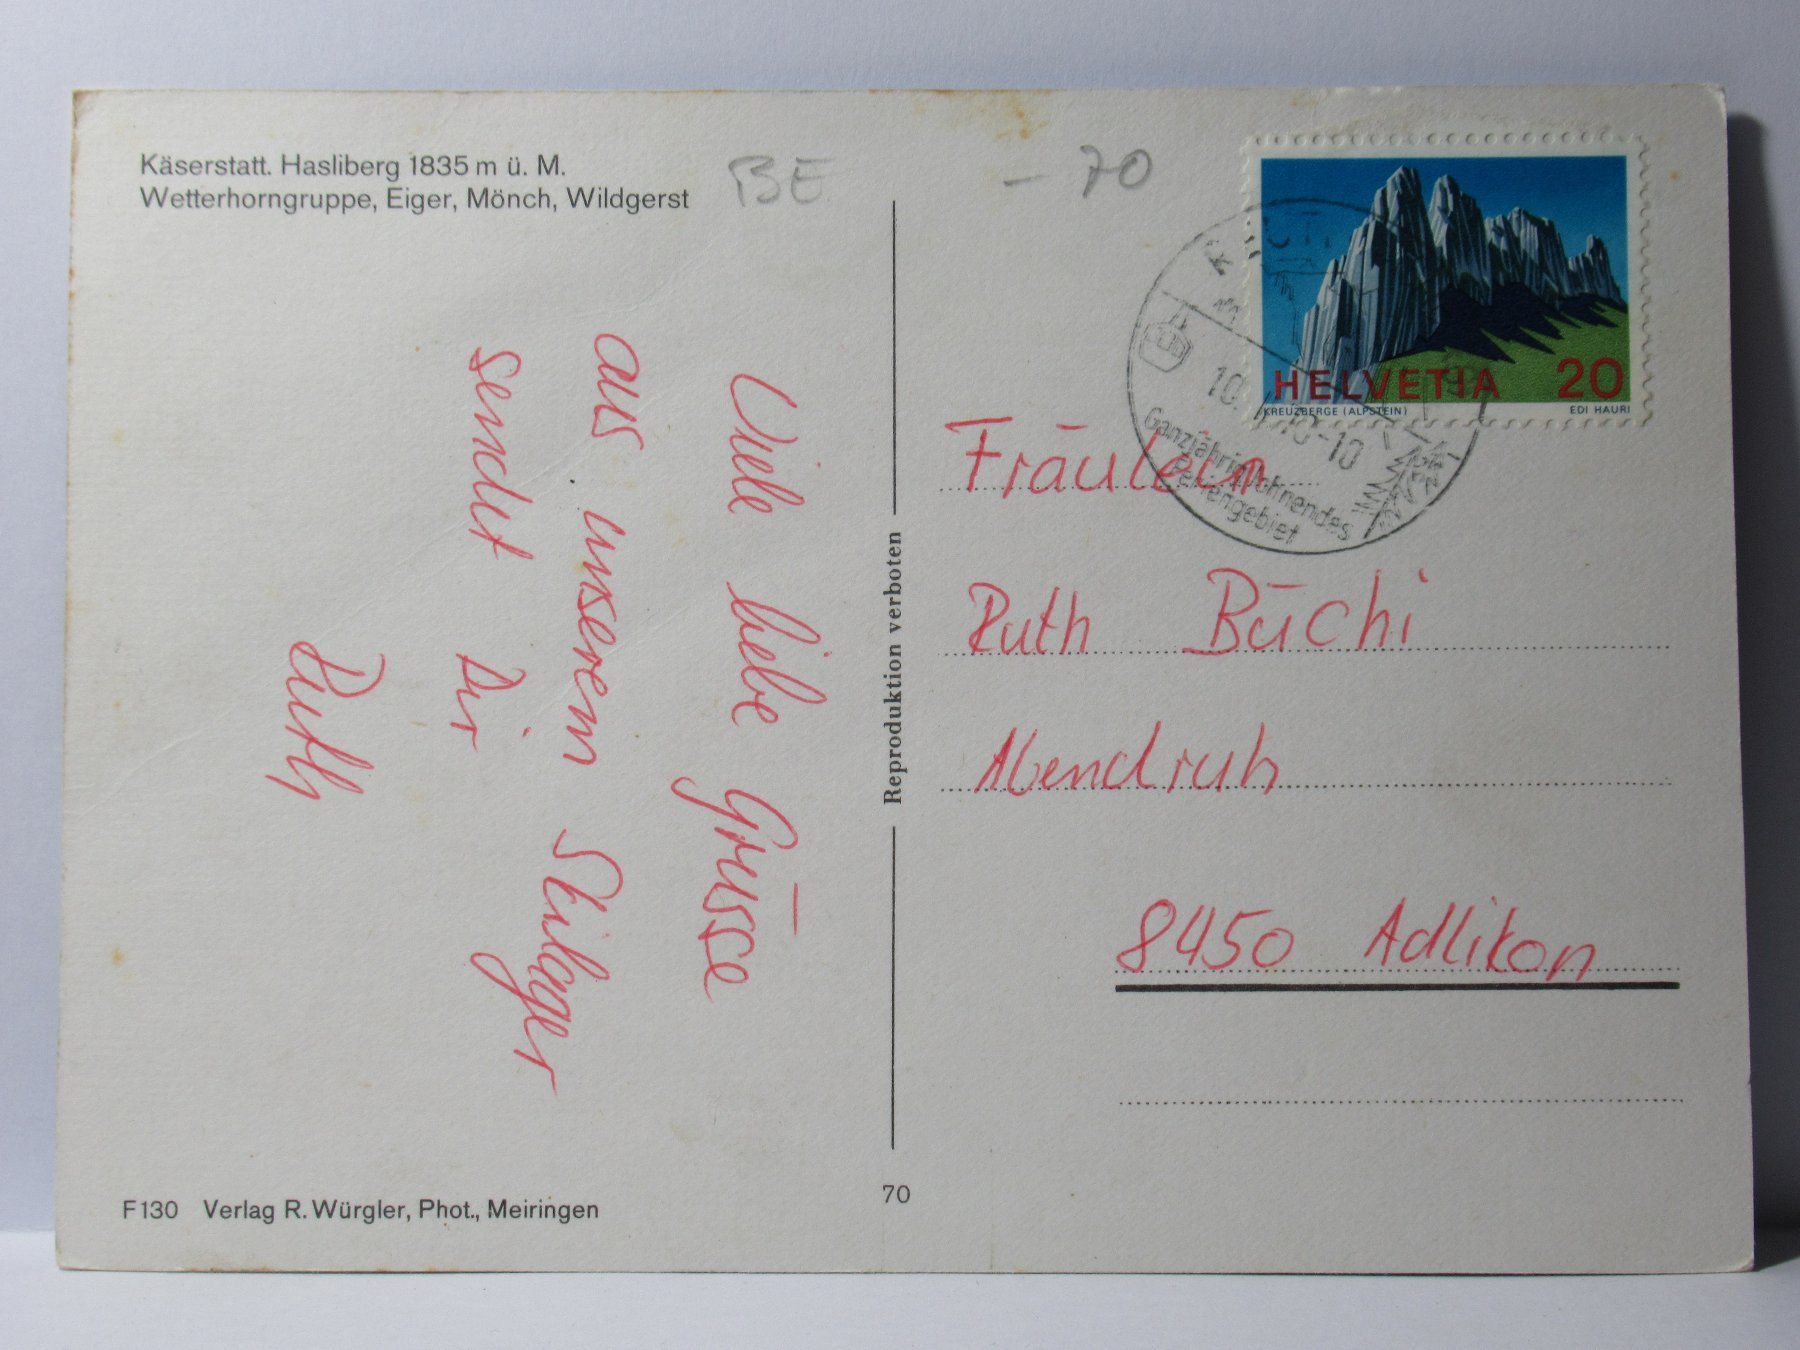 Käserstatt. Hasliberg 1835 m ü. M.
Wetterhorngruppe, Eiger, Mönch, Wildgerst
BE
- 70
Viele liebe Grüsse
aus unserem Skilager
sendet Dir
Ruth
F130 Verlag R. Würgler, Phot., Meiringen
Reproduktion verboten
70
HELVETIA 20
KREUZBERGE (ALPSTEIN) EDI HAURI
10. -10
Ganzjährig lohnendes
Feriengebiet
Fräulein
Ruth Büchi
Abendruh
8450 Adlikon